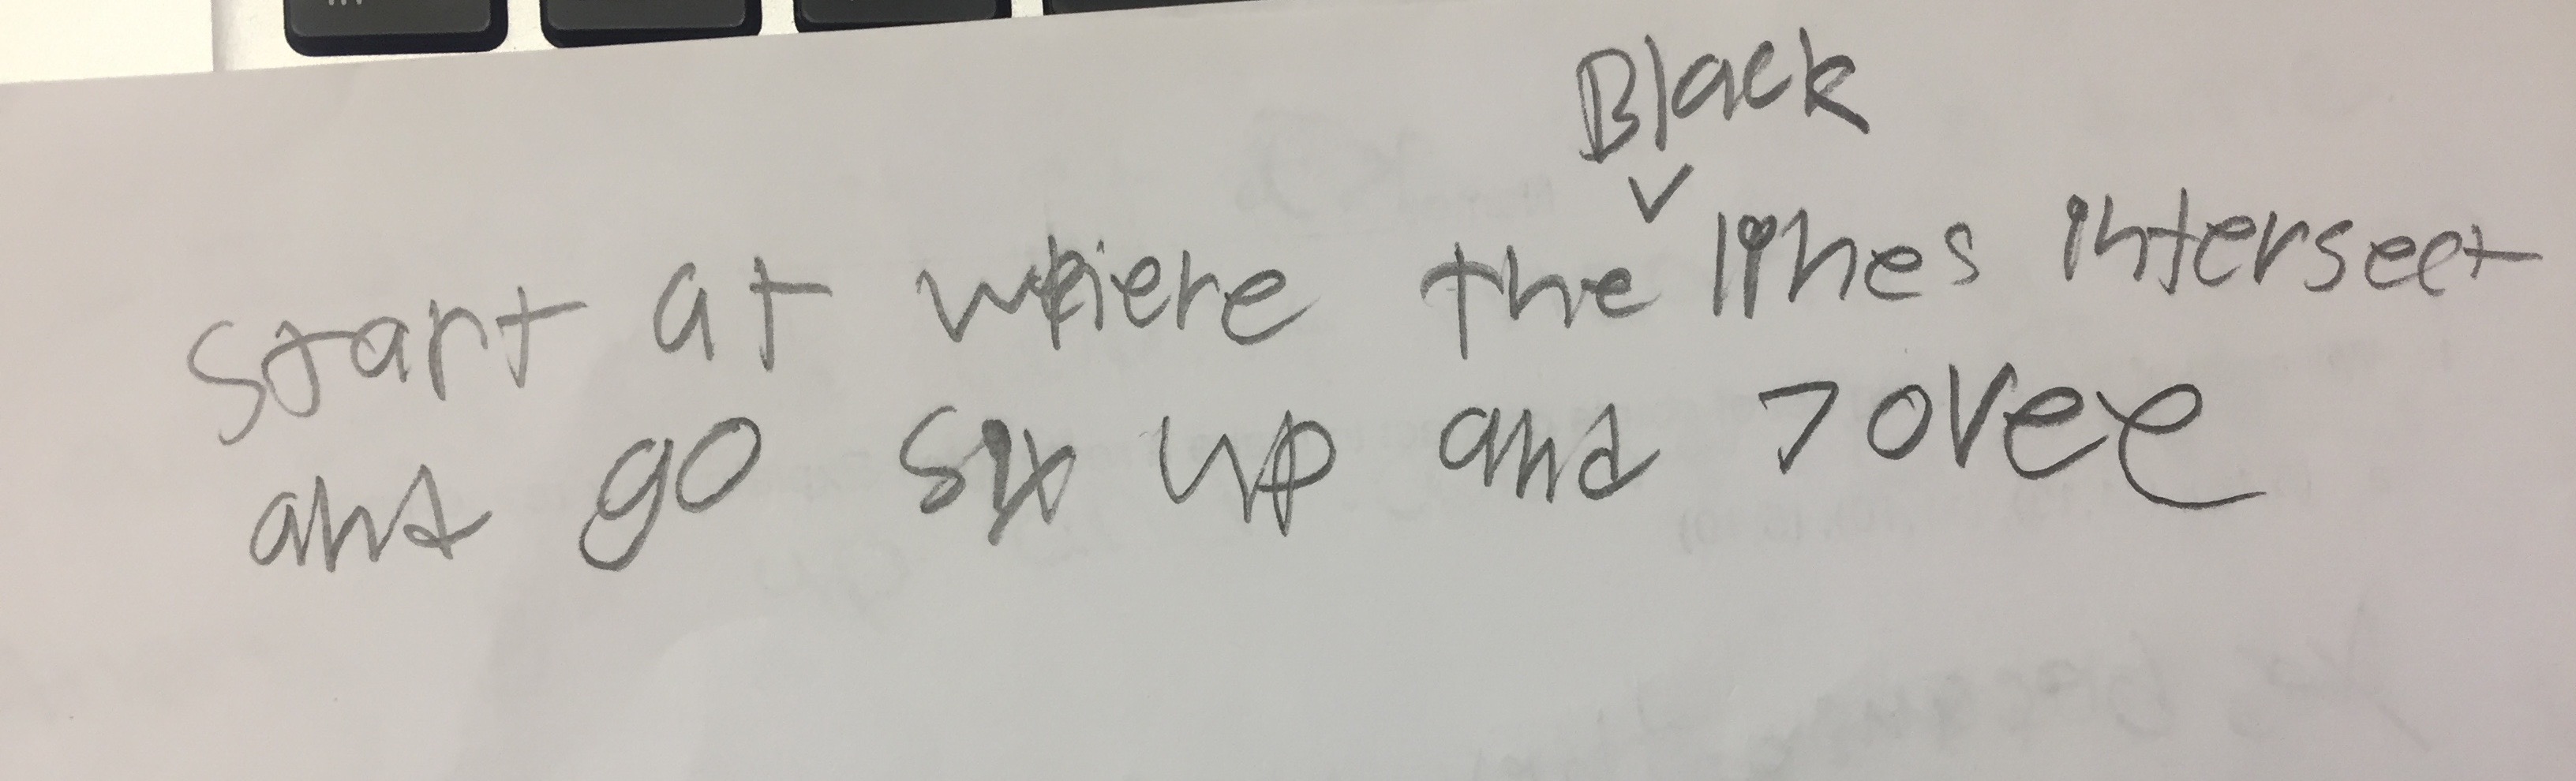 Black
v
start at where the lines intersect
and go six up and 7 over